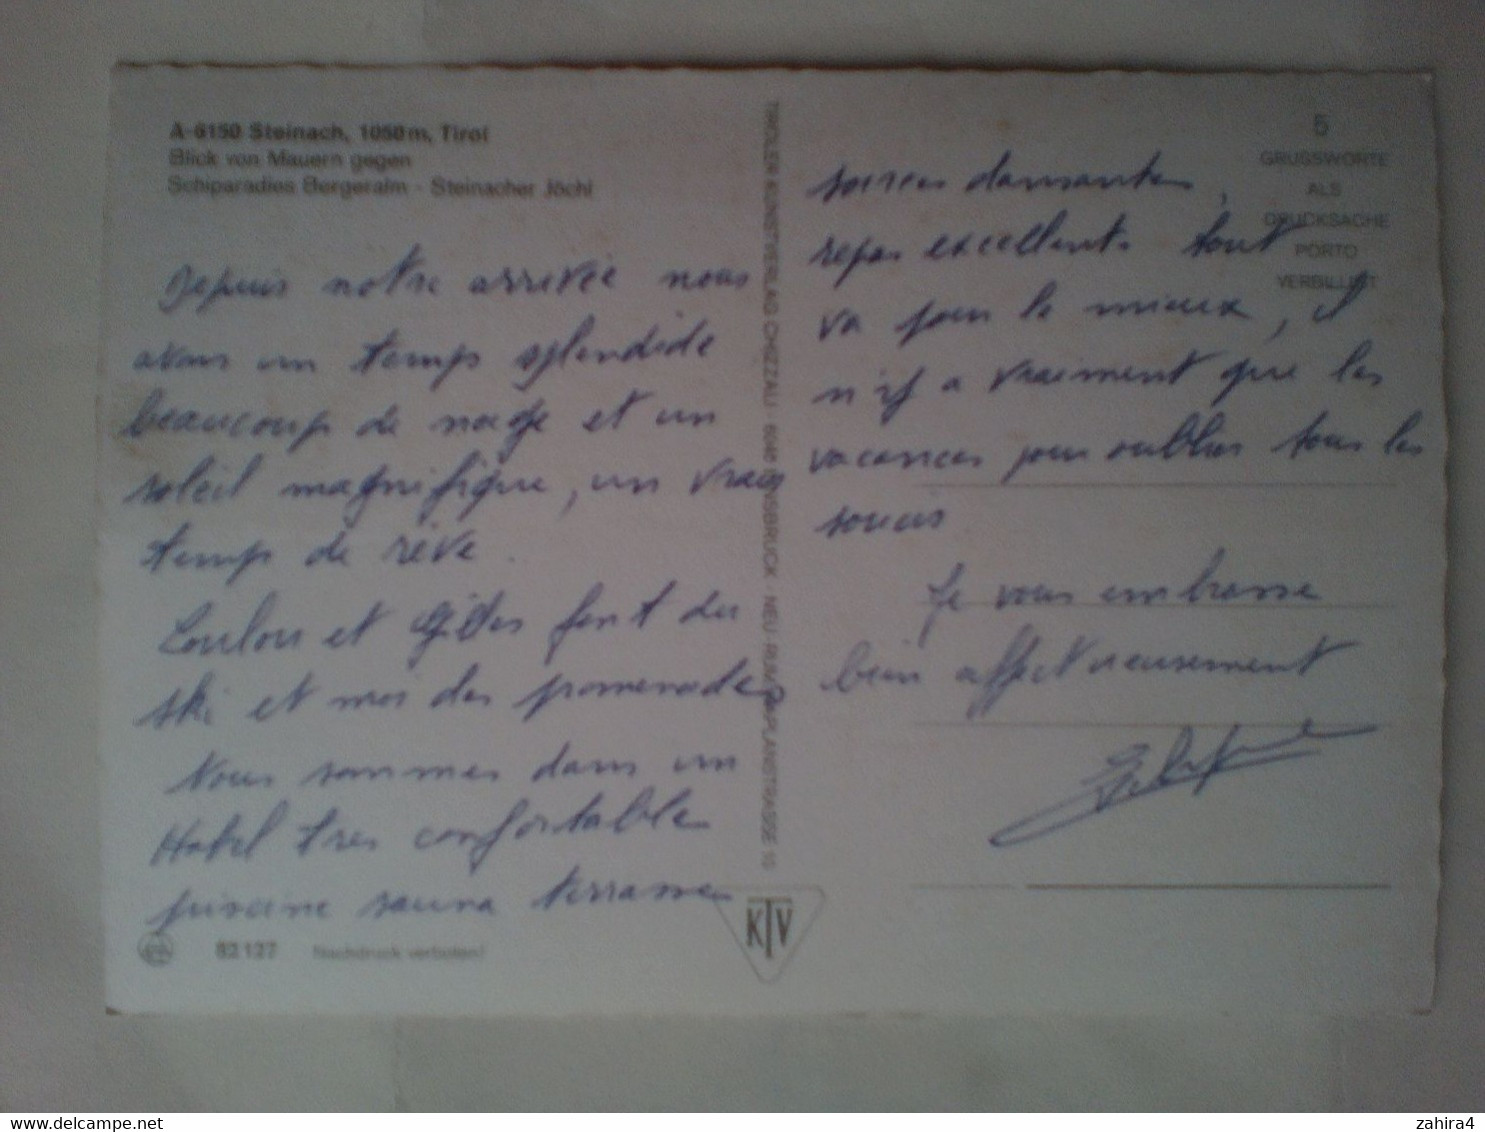 A-6150 Steinach, 1050 m, Tirol
Blick von Mauern gegen
Schiparadies Bergeralm - Steinacher Jöchl
depuis notre arrivée nous
avons un temps splendide
beaucoup de neige et un
soleil magnifique, un vrais
temps de rêve.
Loulou et Gilles font du
ski et moi des promenades
Nous sommes dans un
Hotel tres confortable
piscine sauna terrasse
82 127 Nachdruck verboten!
TIROLER KUNSTVERLAG CHIZZALI · 6040 INNSBRUCK NEU-RUM
KTV
5
GRUSSWORTE
ALS
DRUCKSACHE
PORTO
VERBILLIGT
soirées dansantes,
repas excellents tout
va pour le mieux, il
n'y a vraiement que les
vacances pour oublier tous les
soucis
Je vous embrasse
bien affectueusement
delcampe.net
zahira4